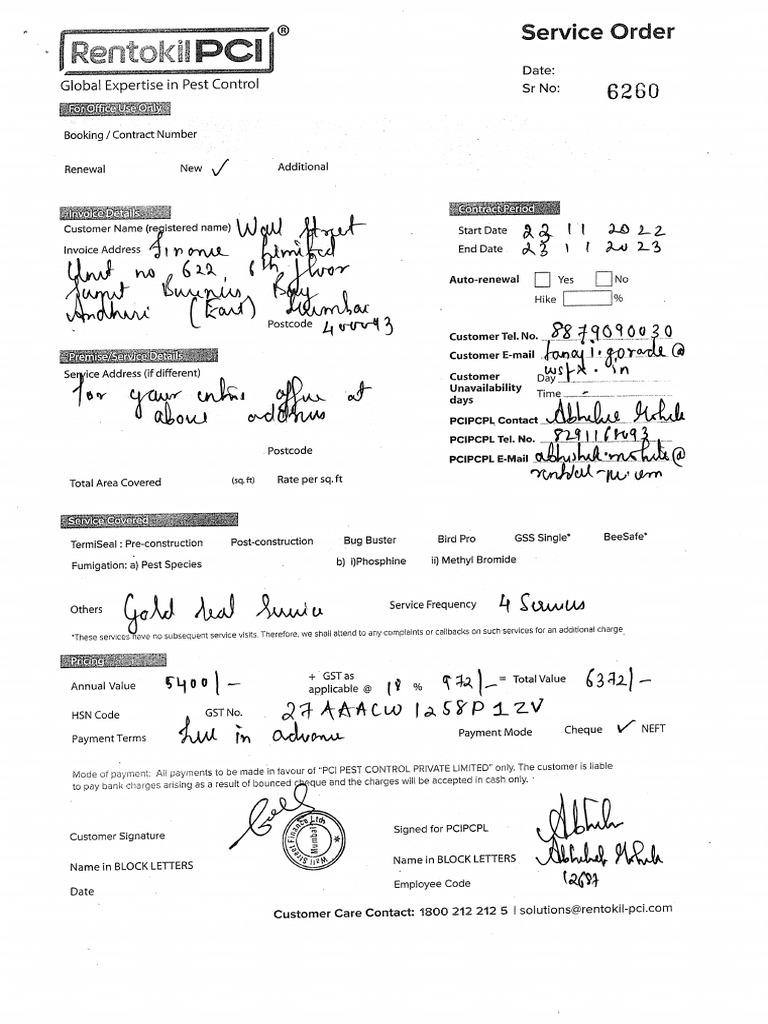 RentokilPCI®
Global Expertise in Pest Control
Service Order
Date:
Sr No: 6260
For Office Use Only
Booking / Contract Number
Renewal New ✓ Additional
Invoice Details
Customer Name (registered name) Wall Street
Invoice Address Finance Limited
Unit no 622, 6th floor
Andheri (East) Mumbai
Postcode 400093
Contract Period
Start Date 22 11 2022
End Date 23 11 2023
Auto-renewal Yes No
Hike %
Customer Tel. No. 8879090030
Customer E-mail tanaji.gorade@
wsfx.in
Customer Unavailability days Day
Time -
PCIPCPL Contact Abhishek Mohite
PCIPCPL Tel. No. 8291168093
PCIPCPL E-Mail abhishek.mohite@
Premise/Service Details
Service Address (if different)
For your entire office at
above address
Postcode
Total Area Covered (sq. ft) Rate per sq. ft
Service Covered
TermiSeal : Pre-construction Post-construction Bug Buster Bird Pro GSS Single* BeeSafe*
Fumigation: a) Pest Species b) i)Phosphine ii) Methyl Bromide
Others Gold Seal Service Service Frequency 4 Services
*These services have no subsequent service visits. Therefore, we shall attend to any complaints or callbacks on such services for an additional charge
Pricing
Annual Value 5400/- + GST as applicable @ 18 % 972/- = Total Value 6372/-
HSN Code GST No. 27AAACW1258P1ZV
Payment Terms in advance Payment Mode Cheque ✓ NEFT
Mode of payment: All payments to be made in favour of "PCI PEST CONTROL PRIVATE LIMITED" only. The customer is liable
to pay bank charges arising as a result of bounced cheque and the charges will be accepted in cash only.
Customer Signature
Wall Street Finance Ltd.
Mumbai
*
Signed for PCIPCPL Abhishek
Name in BLOCK LETTERS
Name in BLOCK LETTERS Abhishek Mohite
Date
Employee Code 12687
Customer Care Contact: 1800 212 212 5 | solutions@rentokil-pci.com